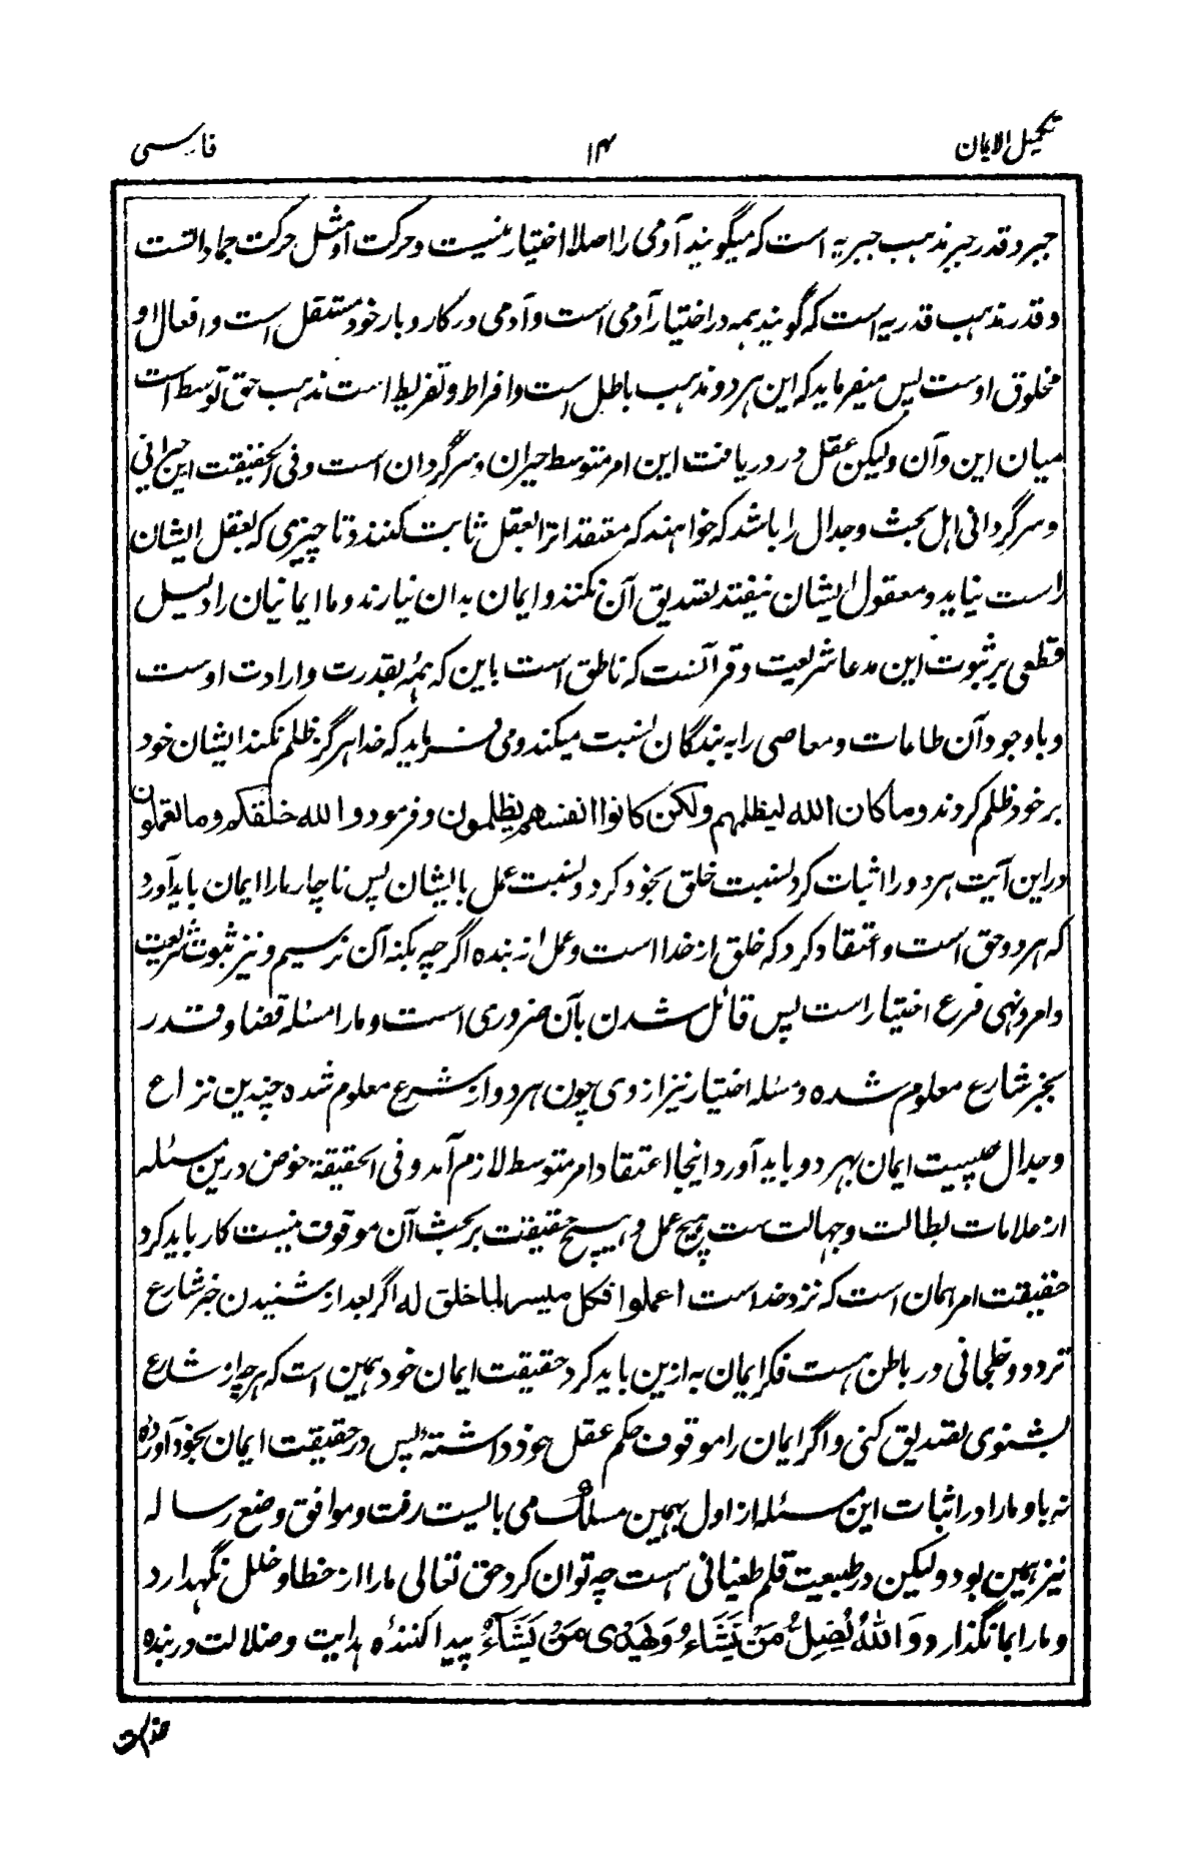 تکمیل الایمان
۱۴
فارسی
جبر و قدر جبر مذہب جبریہ است کہ میگویند آدمی را اصلا اختیار نیست و حرکت او مثل حرکت جمادات است
و قدر مذہب قدریہ است کہ گویند ہمہ در اختیار آدمی است و آدمی در کار و بار خود مستقل است و افعال او
مخلوق اوست پس میفرماید کہ این ہر دو مذہب باطل است و افراط و تفریط است مذہب حق توسط است
میان این و آن ولیکن عقل در دریافت این امر متوسط حیران و سرگردان است و فی الحقیقت این حیرانی
و سرگردانی اہل بحث و جدال را باشد کہ خواہند کہ معتقدات را بعقل ثابت کنند و تا چیزی کہ بعقل ایشان
راست نیاید و معقول ایشان نیفتد تصدیق آن نکنند و ایمان بدان نیارند و ما ایمانیان را دلیل
قطعی بر ثبوت این مدعا شریعت و قرآنست کہ ناطق است باین کہ ہمہ بقدرت و ارادت اوست
و با وجود آن طاعات و معاصی را بہ بندگان نسبت میکند و می فرماید کہ خدا ہرگز ظلم نکند ایشان خود
بر خود ظلم کردند وما كان الله ليظلمهم ولكن كانوا انفسهم يظلمون و فرمود والله خلقكم وما تعملون
در این آیت ہر دو را اثبات کرد نسبت خلق بخود کرد و نسبت عمل بایشان پس ناچار ما را ایمان باید آورد
کہ ہر دو حق است و اعتقاد کرد کہ خلق از خدا است و عمل از بندہ اگر چہ بکنہ آن نرسیم و نیز ثبوت شریعت
و امر و نہی فرع اختیار است پس قائل شدن بآن ضروری است و ما را مسئلہ قضا و قدر
بخبر شارع معلوم شدہ و مسئلہ اختیار نیز از وی چون ہر دو از شرع معلوم شدہ چندین نزاع
و جدال چیست ایمان بہر دو باید آورد اینجا اعتقاد امر متوسط لازم آمد و فی الحقیقۃ خوض درین مسئلہ
از علامات بطالت و جہالت ست ہیچ عمل و ہیچ حقیقت بر بحث آن موقوف نیست کار باید کرد
حقیقت امر ہمان است کہ نزد خداست اعملوا فكل ميسر لما خلق له اگر بعد از شنیدن خبر شارع
تردد و خلجانی در باطن ہست فکر ایمان بہ ازین باید کرد حقیقت ایمان خود ہمین است کہ ہر چہ از شارع
بشنوی تصدیق کنی و اگر ایمان را موقوف حکم عقل خود داشتہ پس در حقیقت ایمان بخود آوردہ
نہ باو ما را در اثبات این مسئلہ از اول بہمین مسلک می بایست رفت و موافق وضع رسالہ
نیز ہمین بود ولیکن در طبیعت قلم طغیانی ہست چہ توان کرد حق تعالی ما را از خطا و خلل نگہدارد
و ما را بما نگذارد وَاللهُ يُضِلُّ مَنْ يَّشَاءُ وَيَهْدِى مَنْ يَّشَاءُ پیدا کنندۂ ہدایت و ضلالت در بندہ